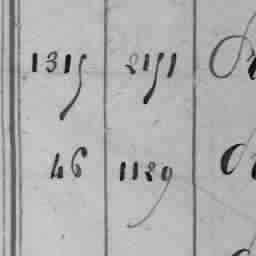 1315 2151
46 1129